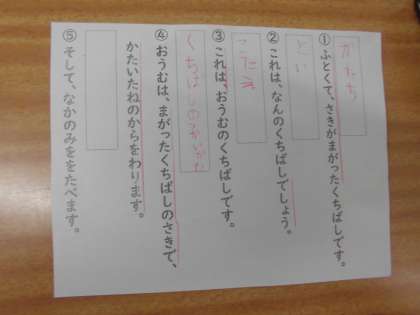 かたち
①ふとくて、さきがまがったくちばしです。
とい
②これは、なんのくちばしでしょう。
こたえ
③これは、おうむのくちばしです。
くちばしのつかいかた
④おうむは、まがったくちばしのさきで、
かたいたねのからをわります。
⑤そして、なかのみををたべます。